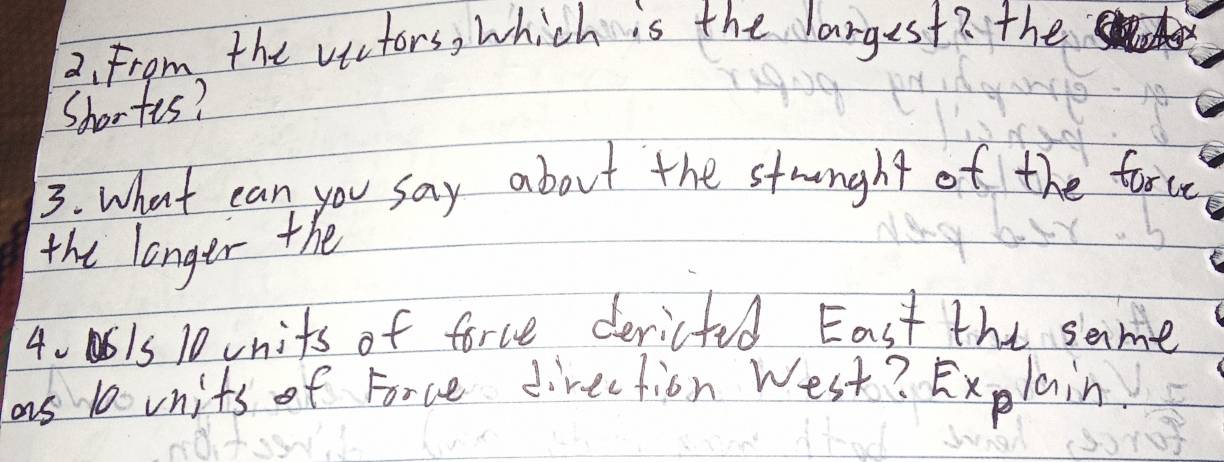 2. From the vectors, which is the largest? the
Shortes?
3. What can you say about the strenght of the force
the longer the
4. Is 10 units of force dericted East the same
as 10 units of Force direction West? Explain.